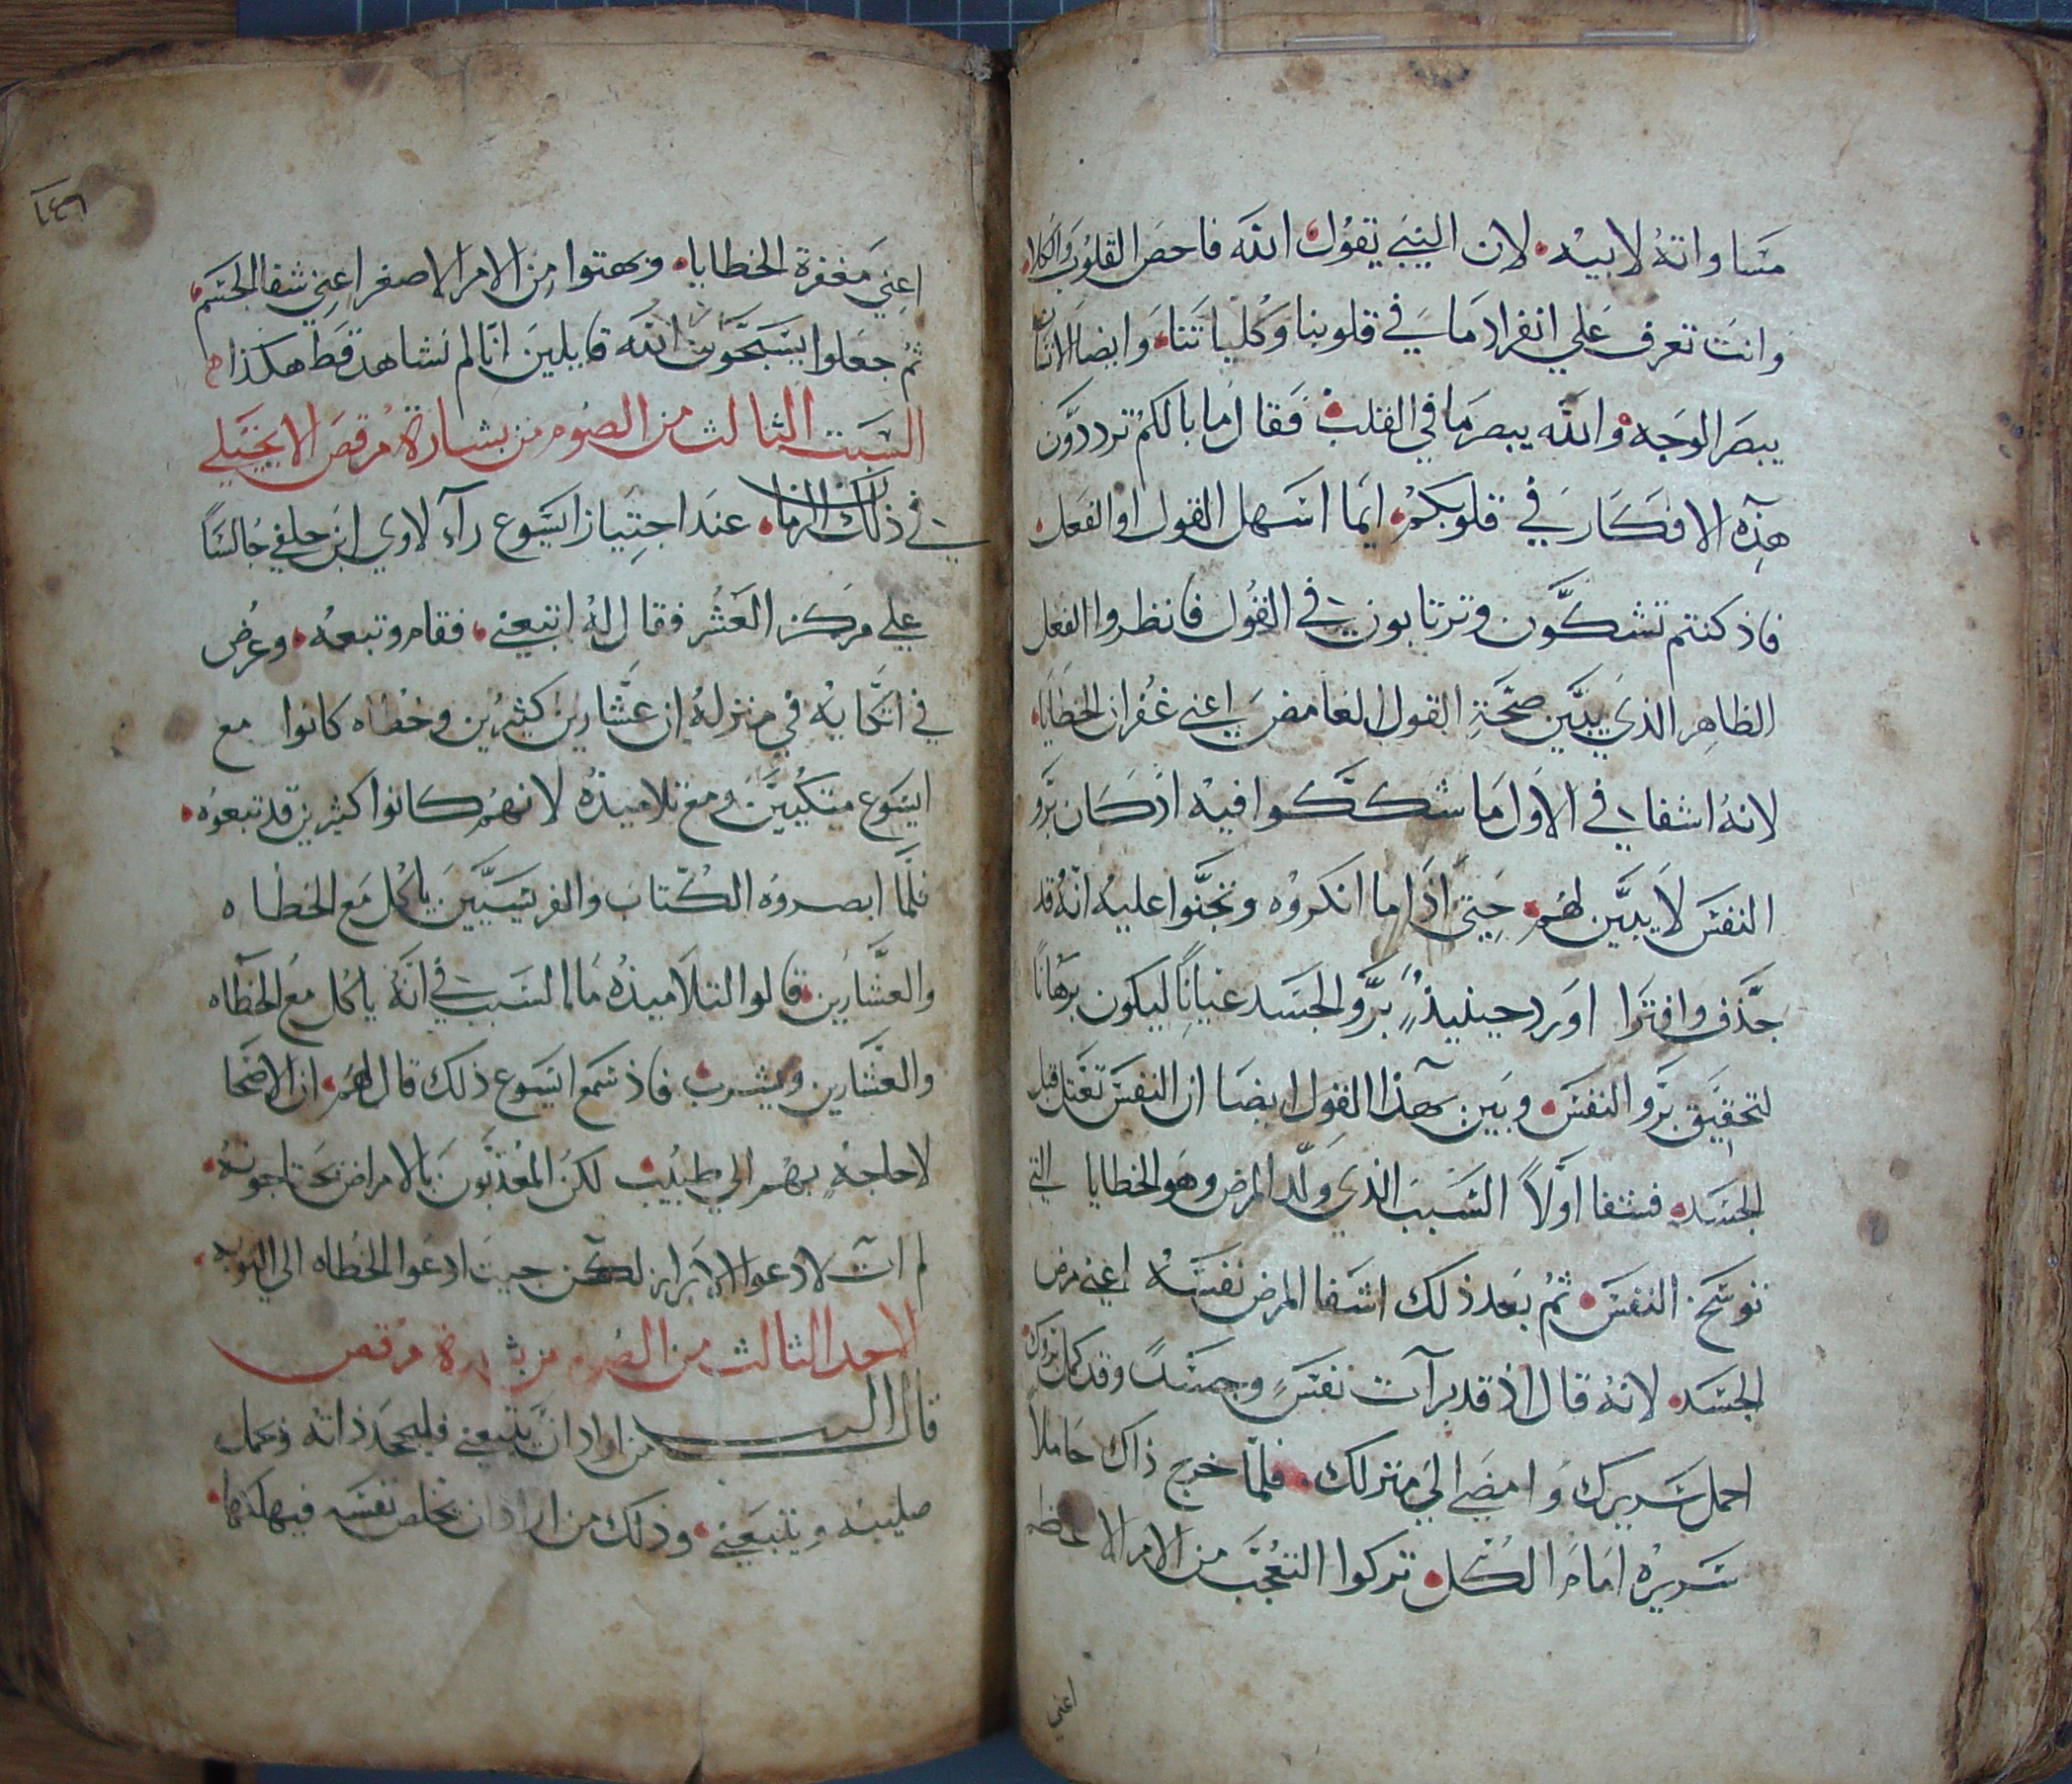 مساواته لابيه. لان النبي يقول الله فاحص القلوب والكلا.
وانت تعرف علي انفراد ما في قلوبنا وكلياتنا. وايضا الانسان
يبصر الوجه. والله يبصر ما في القلب. فقال ما بالكم ترددون
هذه الافكار في قلوبكم. ايما اسهل القول او الفعل.
فاذ كنتم تشكون وترتابون في القول فانظروا الفعل
الظاهر الذي يبين صحة القول الغامض اعني غفران الخطايا.
لانه اشفا في الاول ما شككوا فيه اذ كان برو
النفس لا يبين لهم. حتي اذا ما انكروه وتجنوا عليه انه قد
جدف وافترا اورد حينيذ برو الجسد عيانا ليكون برهانا
لتحقيق برو النفس. وبين بهذا القول ايضا ان النفس تعتل قبل
الجسد. فشفا اولا السبب الذي ولد المرض وهو الخطايا التي
توسخ النفس. ثم بعد ذلك اشفا المرض نفسه اعني مرض
الجسد. لانه قال اذ قد برات نفس وجسد وقد كمل بروك
احمل سريرك وامضي الي منزلك. فلما خرج ذاك حاملا
سريره امام الكل. تركوا التعجب من الامر الاعظم
اعني
١٤٦
اعني مغفرة الخطايا. وبهتوا من الامر الاصغر اعني شفا الجسم.
ثم جعلوا يسبحون الله قايلين انا لم نشاهد قط هكذا
السبت الثالث من الصوم من بشارة مرقص الانجيلي
في ذلك الزمان. عند اجتياز ايسوع رآء لاوي ابن حلفي جالسا
علي مركز العشر فقال له اتبعني. فقام وتبعه. وعرض
في اتكايه في منزله ان عشارين كثيرين وخطاه كانوا مع
ايسوع متكيين ومع تلاميذه لانهم كانوا كثيرين قد تبعوه.
فلما ابصروه الكتاب والفريسيين ياكل مع الخطاه
والعشارين. قالوا لتلاميذه ما السبب في انه ياكل مع الخطاه
والعشارين ويشرب. فاذ سمع ايسوع ذلك قال لهم. ان الاصحا
لا حاجة بهم الي طبيب لكن المعذبون بالامراض يحتاجونه.
لم آت لادعوا الابرار لكن جيت ادعوا الخطاه الي التوبه.
الاحد الثالث من الصوم من بشارة مرقص
قال الرب من اراد ان يتبعني فليجحد ذاته وحمل
صليبه ويتبعني. وذلك من اراد ان يخلص نفسه فيهلكها.